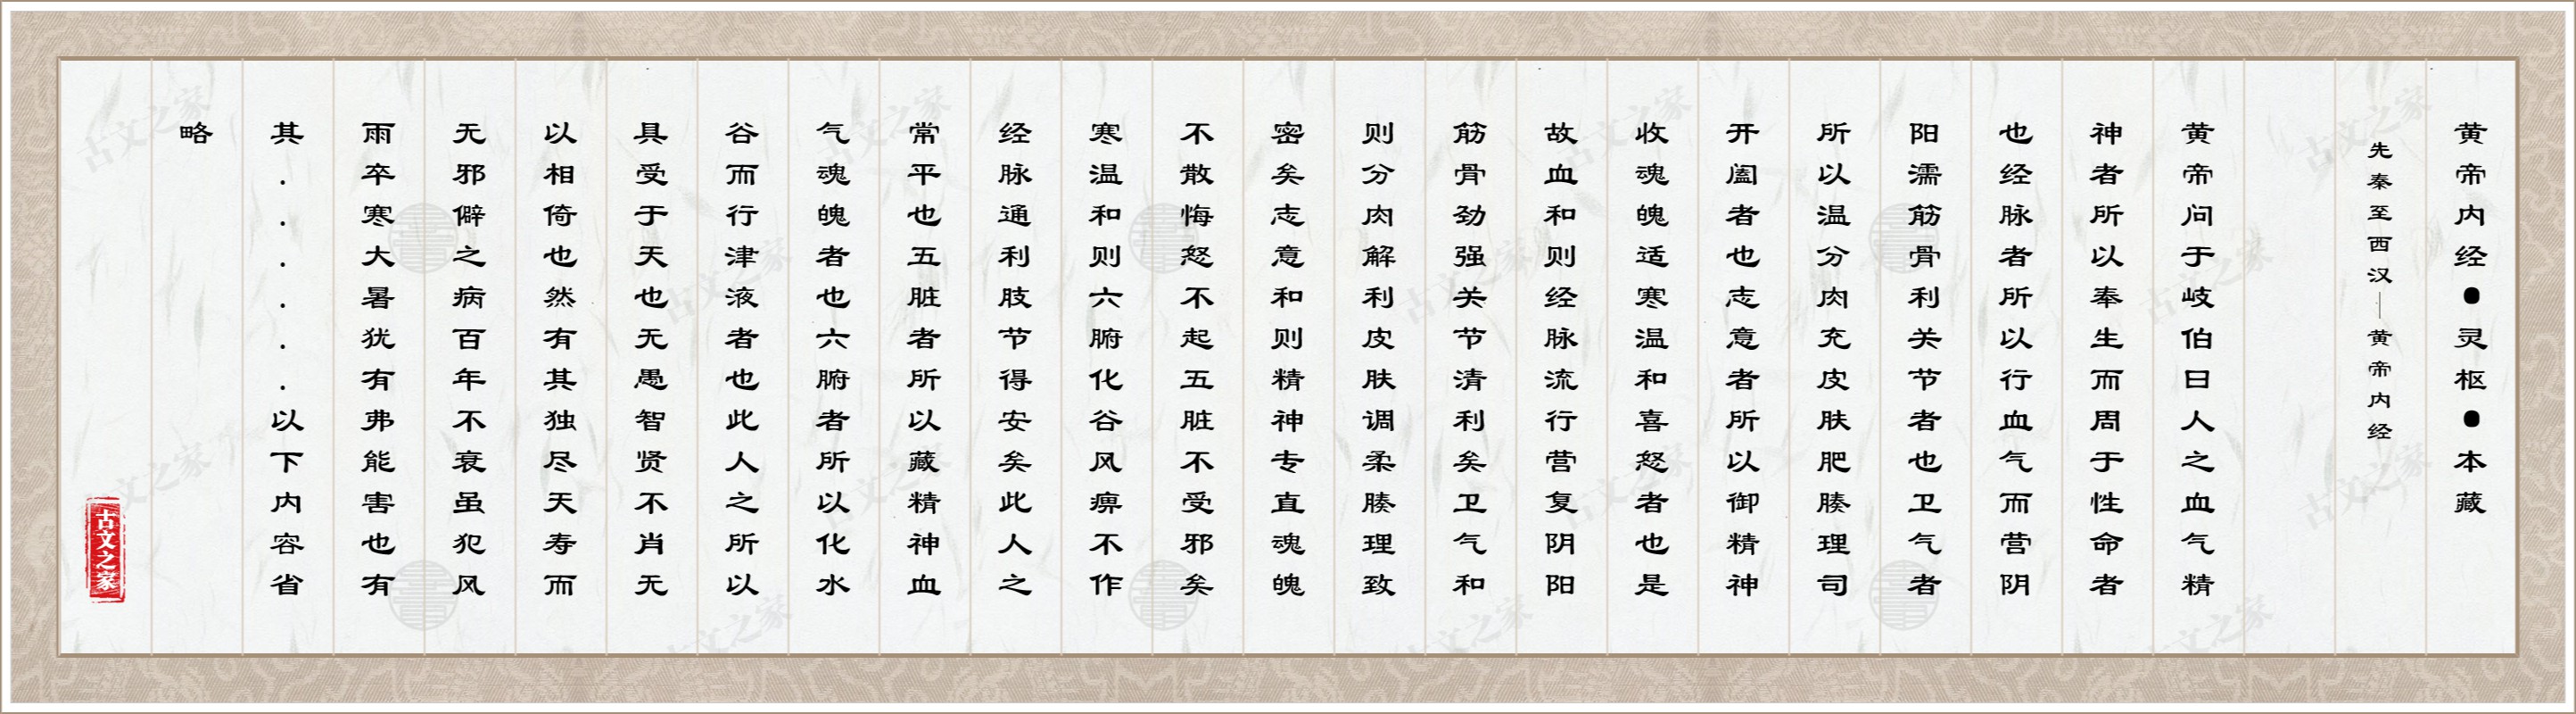 黄帝内经●灵枢●本藏
先秦至西汉—黄帝内经
黄帝问于岐伯曰人之血气精
神者所以奉生而周于性命者
也经脉者所以行血气而营阴
阳濡筋骨利关节者也卫气者
所以温分肉充皮肤肥腠理司
开阖者也志意者所以御精神
收魂魄适寒温和喜怒者也是
故血和则经脉流行营复阴阳
筋骨劲强关节清利矣卫气和
则分肉解利皮肤调柔腠理致
密矣志意和则精神专直魂魄
不散悔怒不起五脏不受邪矣
寒温和则六腑化谷风痹不作
经脉通利肢节得安矣此人之
常平也五脏者所以藏精神血
气魂魄者也六腑者所以化水
谷而行津液者也此人之所以
具受于天也无愚智贤不肖无
以相倚也然有其独尽天寿而
无邪僻之病百年不衰虽犯风
雨卒寒大暑犹有弗能害也有
其......以下内容省
略
古文之家